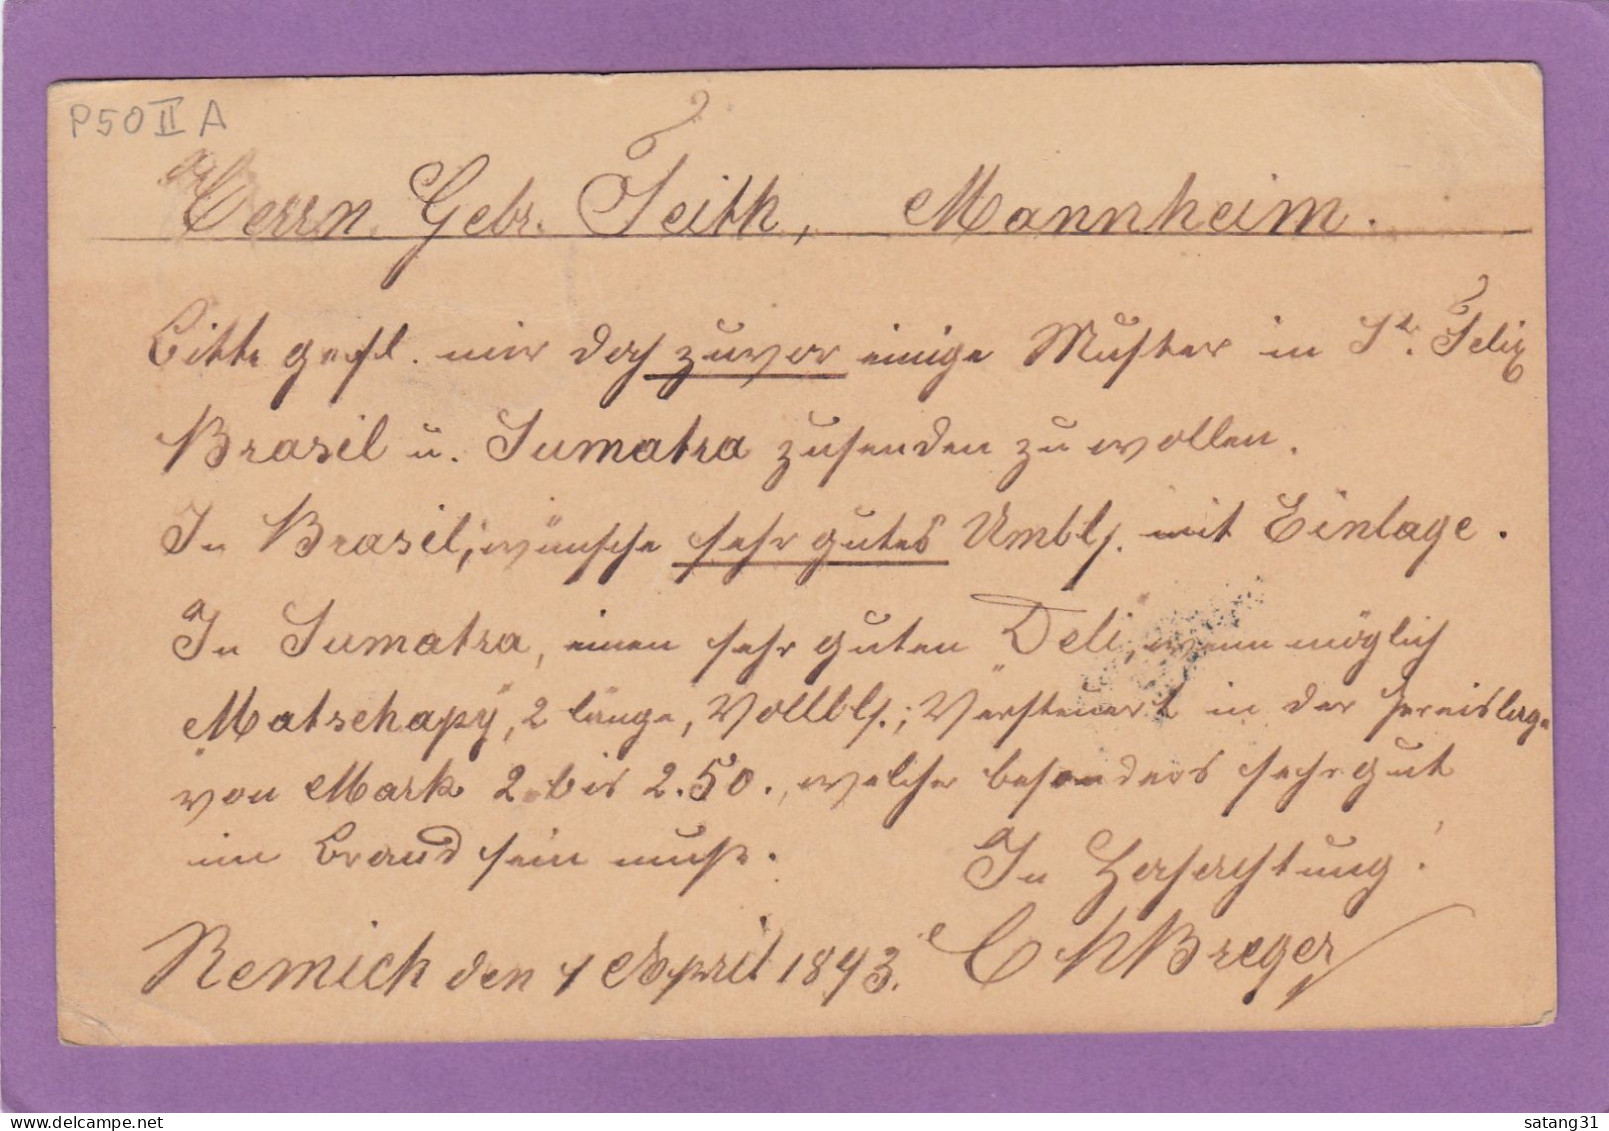 P50 II A
Herrn Gebr. Feith, Mannheim.
Bitte gefl. mir doch zuvor einige Muster in St. Felix
Brasil u. Sumatra zusenden zu wollen.
In Brasil, wünsche sehr gutes Umbl. mit Einlage.
In Sumatra, einen sehr guten Deli, wenn möglich
Matschapÿ, 2 länge, Vollbl.; Versteuert in der Preislage
von Mark 2 bis 2.50., welcher besonders sehr gut
im Brand sein muß.
In Hochachtung!
Remich den 1 April 1893. Breger
satang31